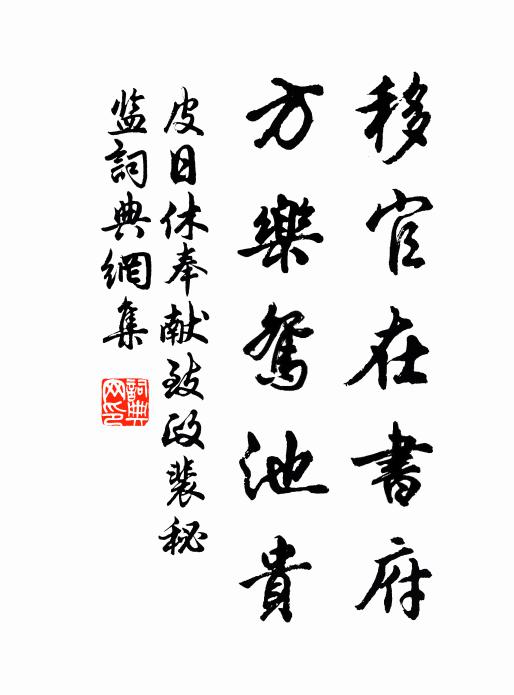 移官在書府
方樂鴛池貴
皮日休奉献致政裴秘
监詞典網集
詞典网印